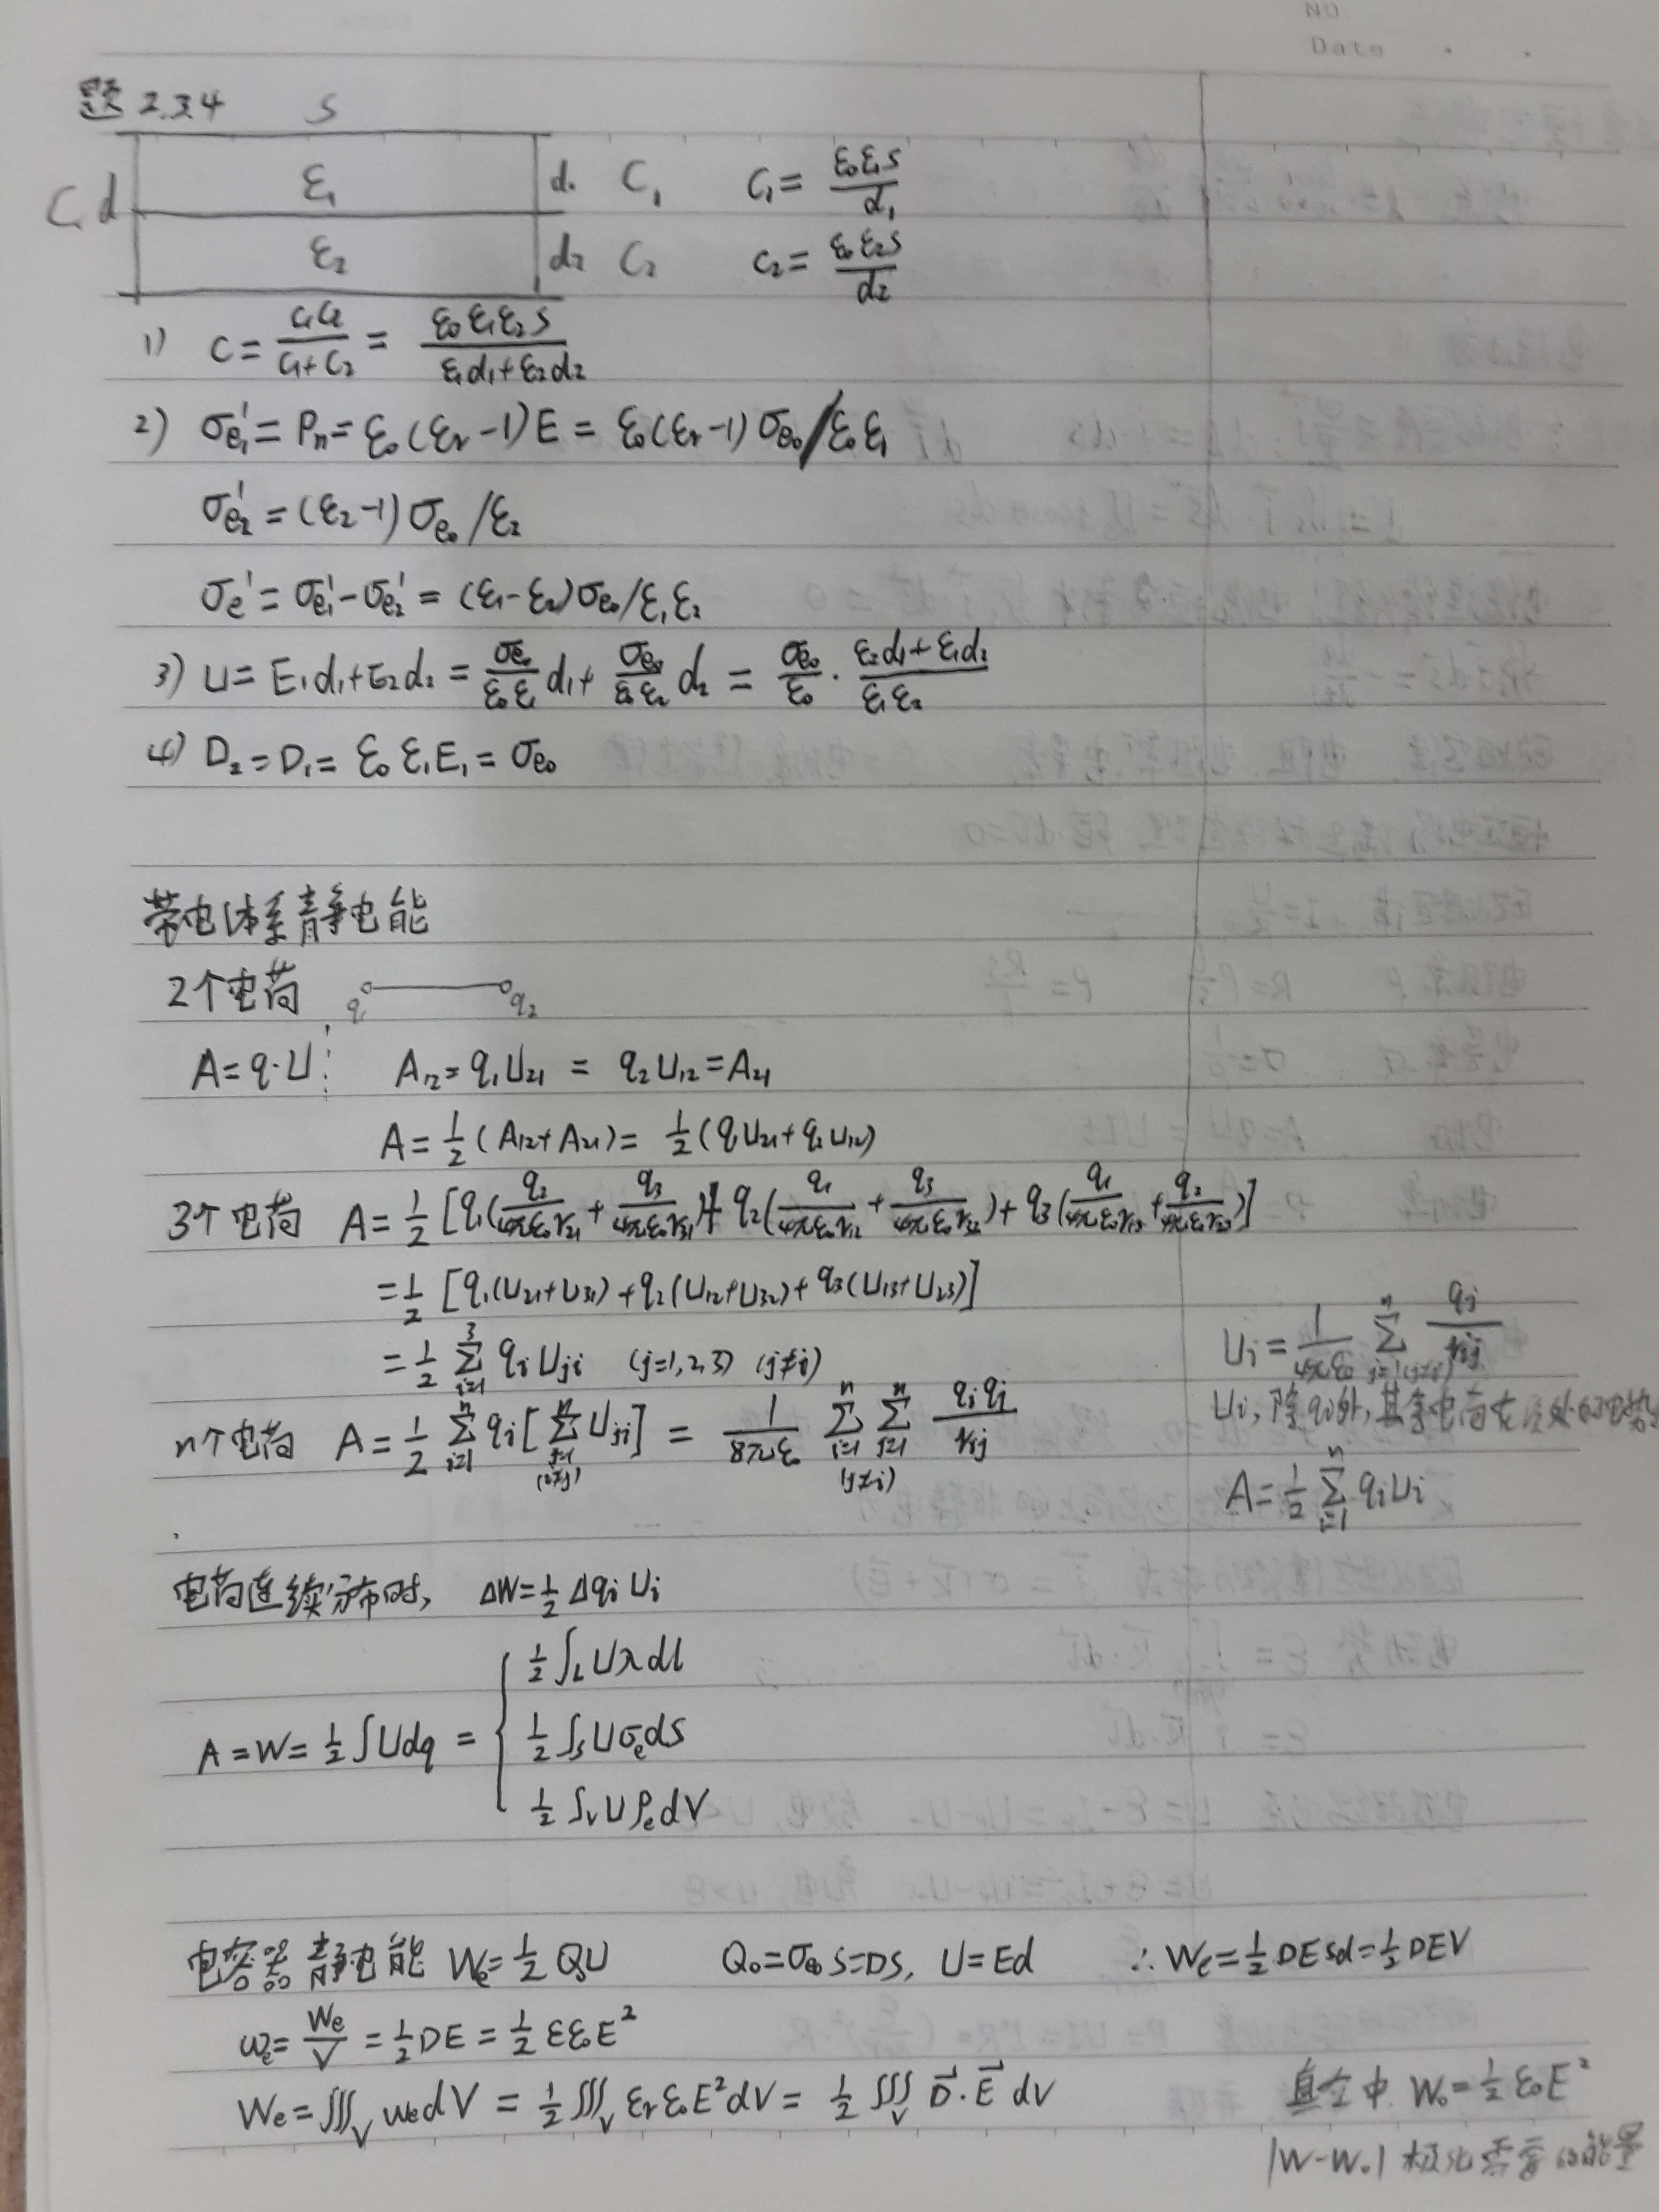 NO
Date . .
题 2.3.4 S
C d ε₁ d₁ C₁ C₁ = ε₀ε₁S/d₁
ε₂ d₂ C₂ C₂ = ε₀ε₂S/d₂
1) C = C₁C₂/(C₁+C₂) = ε₀ε₁ε₂S/(ε₁d₁+ε₂d₂)
2) σe₁' = Pn = ε₀(εr-1)E = ε₀(εr-1)σe₀/ε₀ε₁
σe₂' = (ε₂-1)σe₀/ε₂
σe' = σe₁' - σe₂' = (ε₁-ε₂)σe₀/ε₁ε₂
3) U = E₁d₁+E₂d₂ = (σe₀/ε₀ε₁)d₁ + (σe₀/ε₀ε₂)d₂ = σe₀/ε₀ · (ε₂d₁+ε₁d₂)/ε₁ε₂
4) D₂ = D₁ = ε₀ε₁E₁ = σe₀
带电体系静电能
2个电荷 q₁ q₂
A = q·U A₁₂ = q₁U₂₁ = q₂U₁₂ = A₂₁
A = ½(A₁₂+A₂₁) = ½(q₁U₂₁+q₂U₁₂)
3个电荷 A = ½[q₁(q₂/4πε₀r₂₁ + q₃/4πε₀r₃₁) + q₂(q₁/4πε₀r₁₂ + q₃/4πε₀r₃₂) + q₃(q₁/4πε₀r₁₃ + q₂/4πε₀r₂₃)]
= ½[q₁(U₂₁+U₃₁)+q₂(U₁₂+U₃₂)+q₃(U₁₃+U₂₃)]
= ½ Σ(i=1→3) qᵢUⱼᵢ (j=1,2,3) (j≠i)
Uᵢ = 1/4πε₀ Σ(j=1(j≠i)→n) qⱼ/rᵢⱼ
n个电荷 A = ½ Σ(i=1→n) qᵢ[Σ(j=1→n)(i≠j) Uⱼᵢ] = 1/8πε₀ Σ(i=1→n) Σ(j=1→n)(j≠i) qᵢqⱼ/rᵢⱼ
Uᵢ, 除qᵢ外, 其余电荷在 处的电势
A = ½ Σ(i=1→n) qᵢUᵢ
电荷连续分布时, ΔW = ½ΔqᵢUᵢ
A = W = ½∫Udq = {
½∫L Uλdl
½∫S Uσe dS
½∫V Uρe dV
电容器静电能 We = ½Q₀U Q₀ = σe₀S = DS, U = Ed ∴ We = ½DESd = ½DEV
ωe = We/V = ½DE = ½εε₀E²
We = ∭V ωe dV = ½∭V εrε₀E²dV = ½∭V D⃗·E⃗ dV
真空中 W₀ = ½ε₀E²
|W-W₀| 极化需要的能量